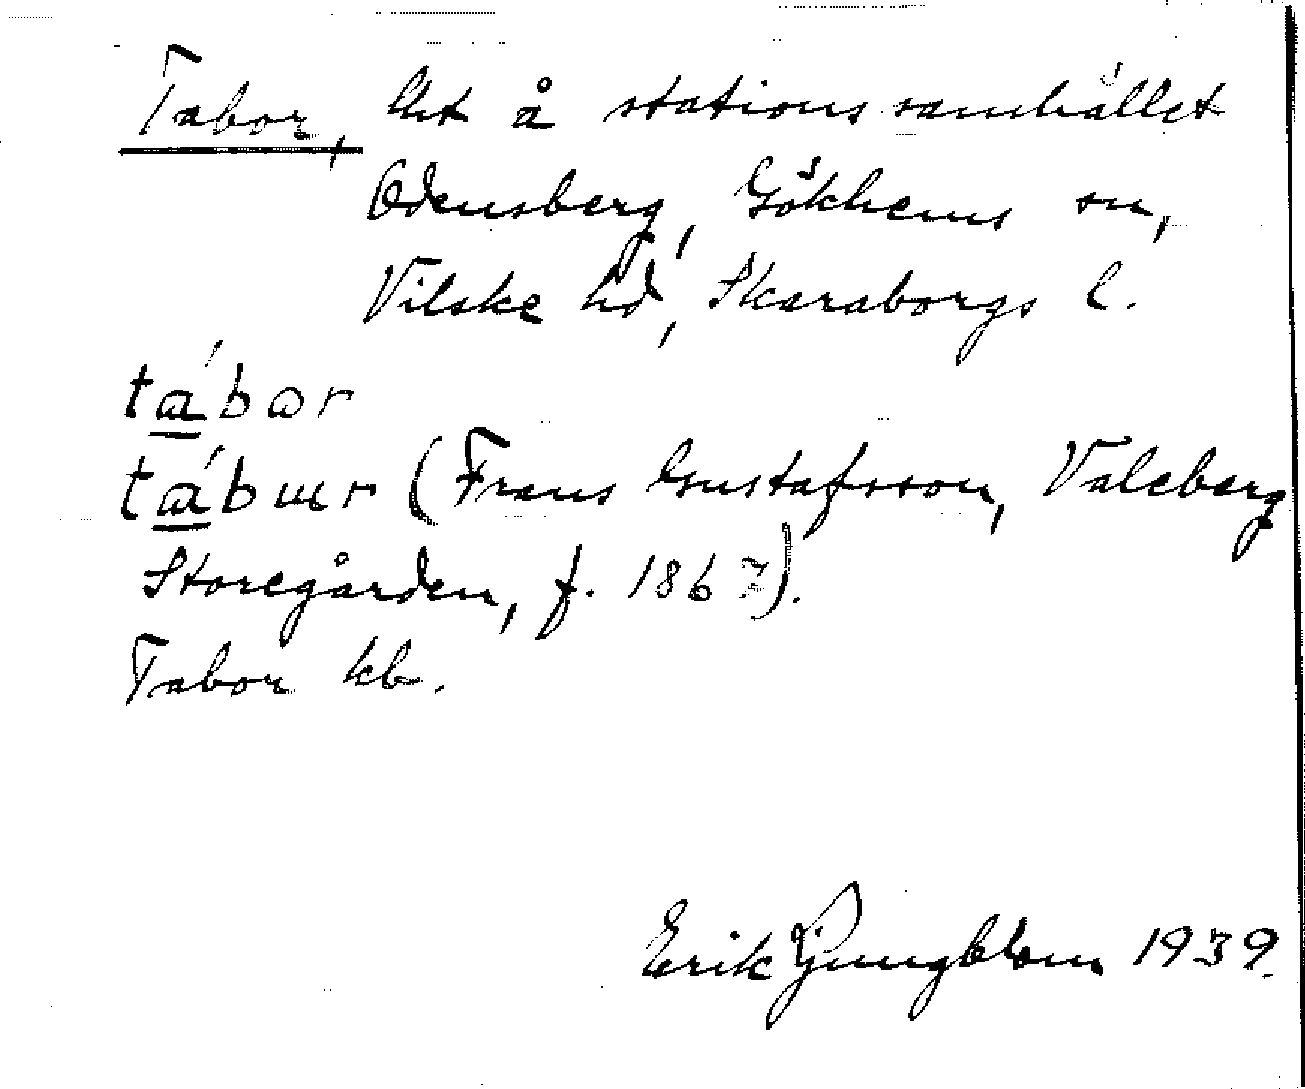 Tabor, lht å stationssamhället
Odensberg, Gökhems sn,
Vilske hd, Skaraborgs l.
tábɷr
tábɯr (Frans Gustafsson, Valeberg
Storegården, f. 1867).
Tabor kb.
Erik Ljungblom 1939.